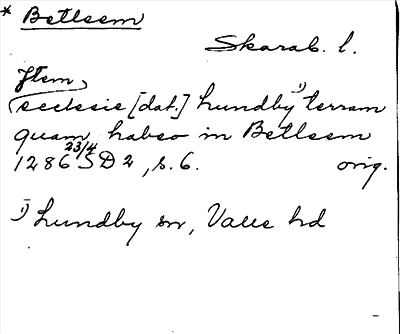 * Betleem
Skarab. l.
Item
ecclesie [dat.] hundby 1) terram
quam habeo in Betleem
1286 23/4 SD 2, s. 6. orig.
1) hundby sn, Valle hd